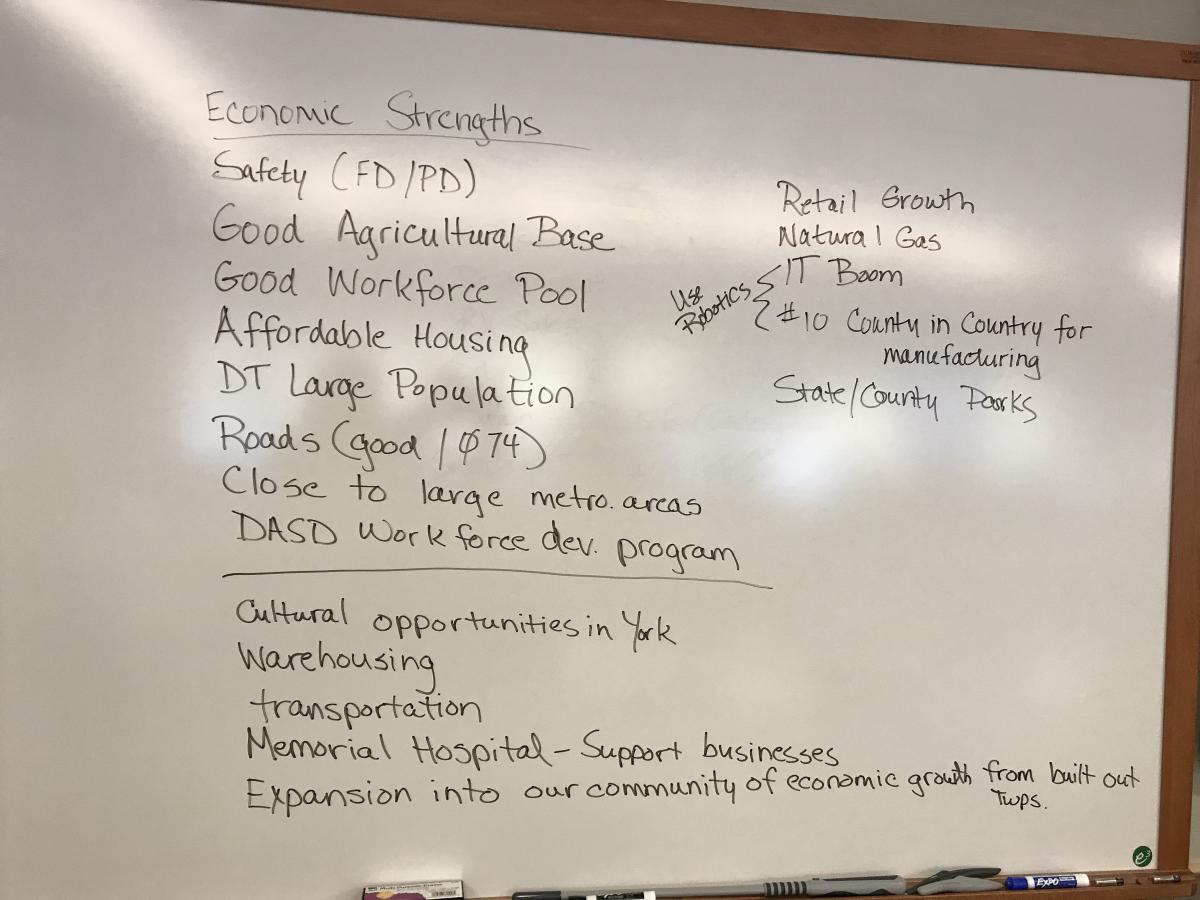 Economic Strengths
Safety (FD/PD)
Good Agricultural Base
Good Workforce Pool
Affordable Housing
DT Large Population
Roads (good / 74)
Close to large metro. areas
DASD Workforce dev. program
Cultural opportunities in York
Warehousing
transportation
Memorial Hospital - Support businesses
Expansion into our community of economic growth from built out
Twps.
Retail Growth
Natural Gas
Use
Robotics
IT Boom
#10 County in Country for
manufacturing
State/County Parks
EXPO